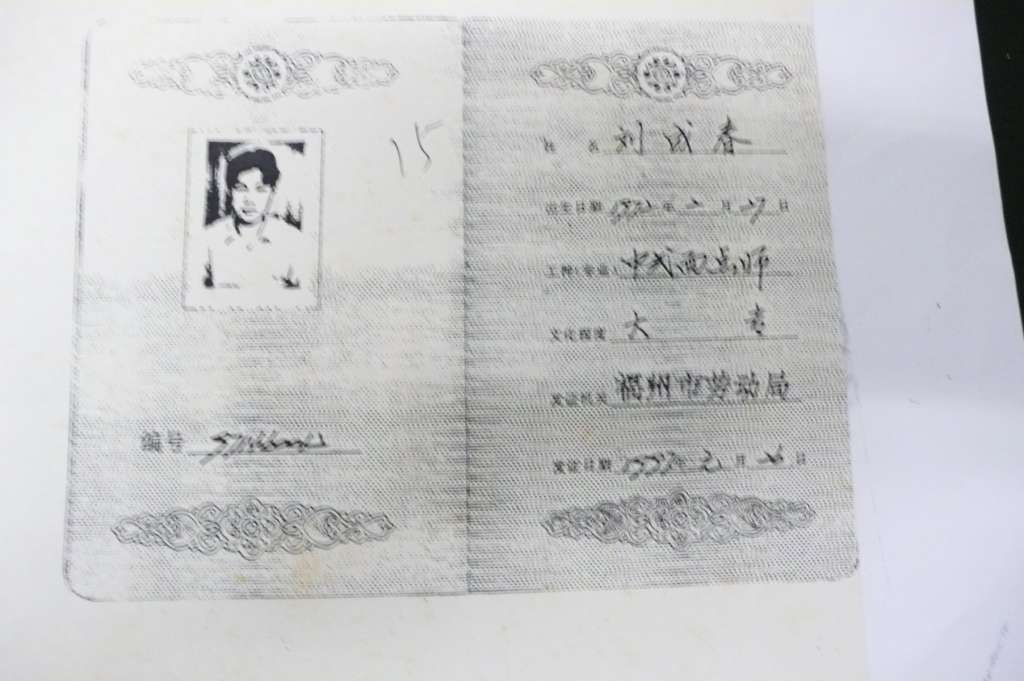 15
编号
姓 名 刘成春
出生日期 1972年2月27日
工种(专业) 中式面点师
文化程度 大 专
发证机关 福州市劳动局
发证日期 1997年 月 26日